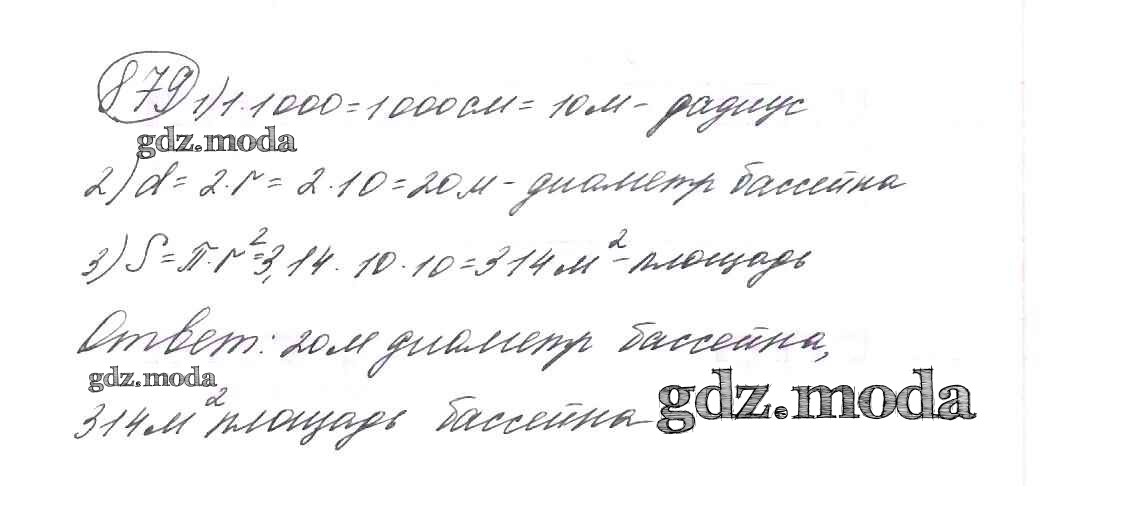 879 1) 1·1000=1000см=10м- радиус
gdz.moda
2) d= 2·r= 2·10=20м- диаметр бассейна
3) S=π·r²=3,14·10·10=314м²-площадь
Ответ: 20м диаметр бассейна,
gdz.moda
314м² площадь бассейна
gdz.moda